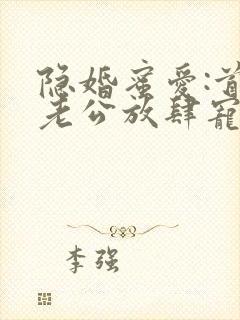 隐婚蜜爱:首
老公放肆宠
李强